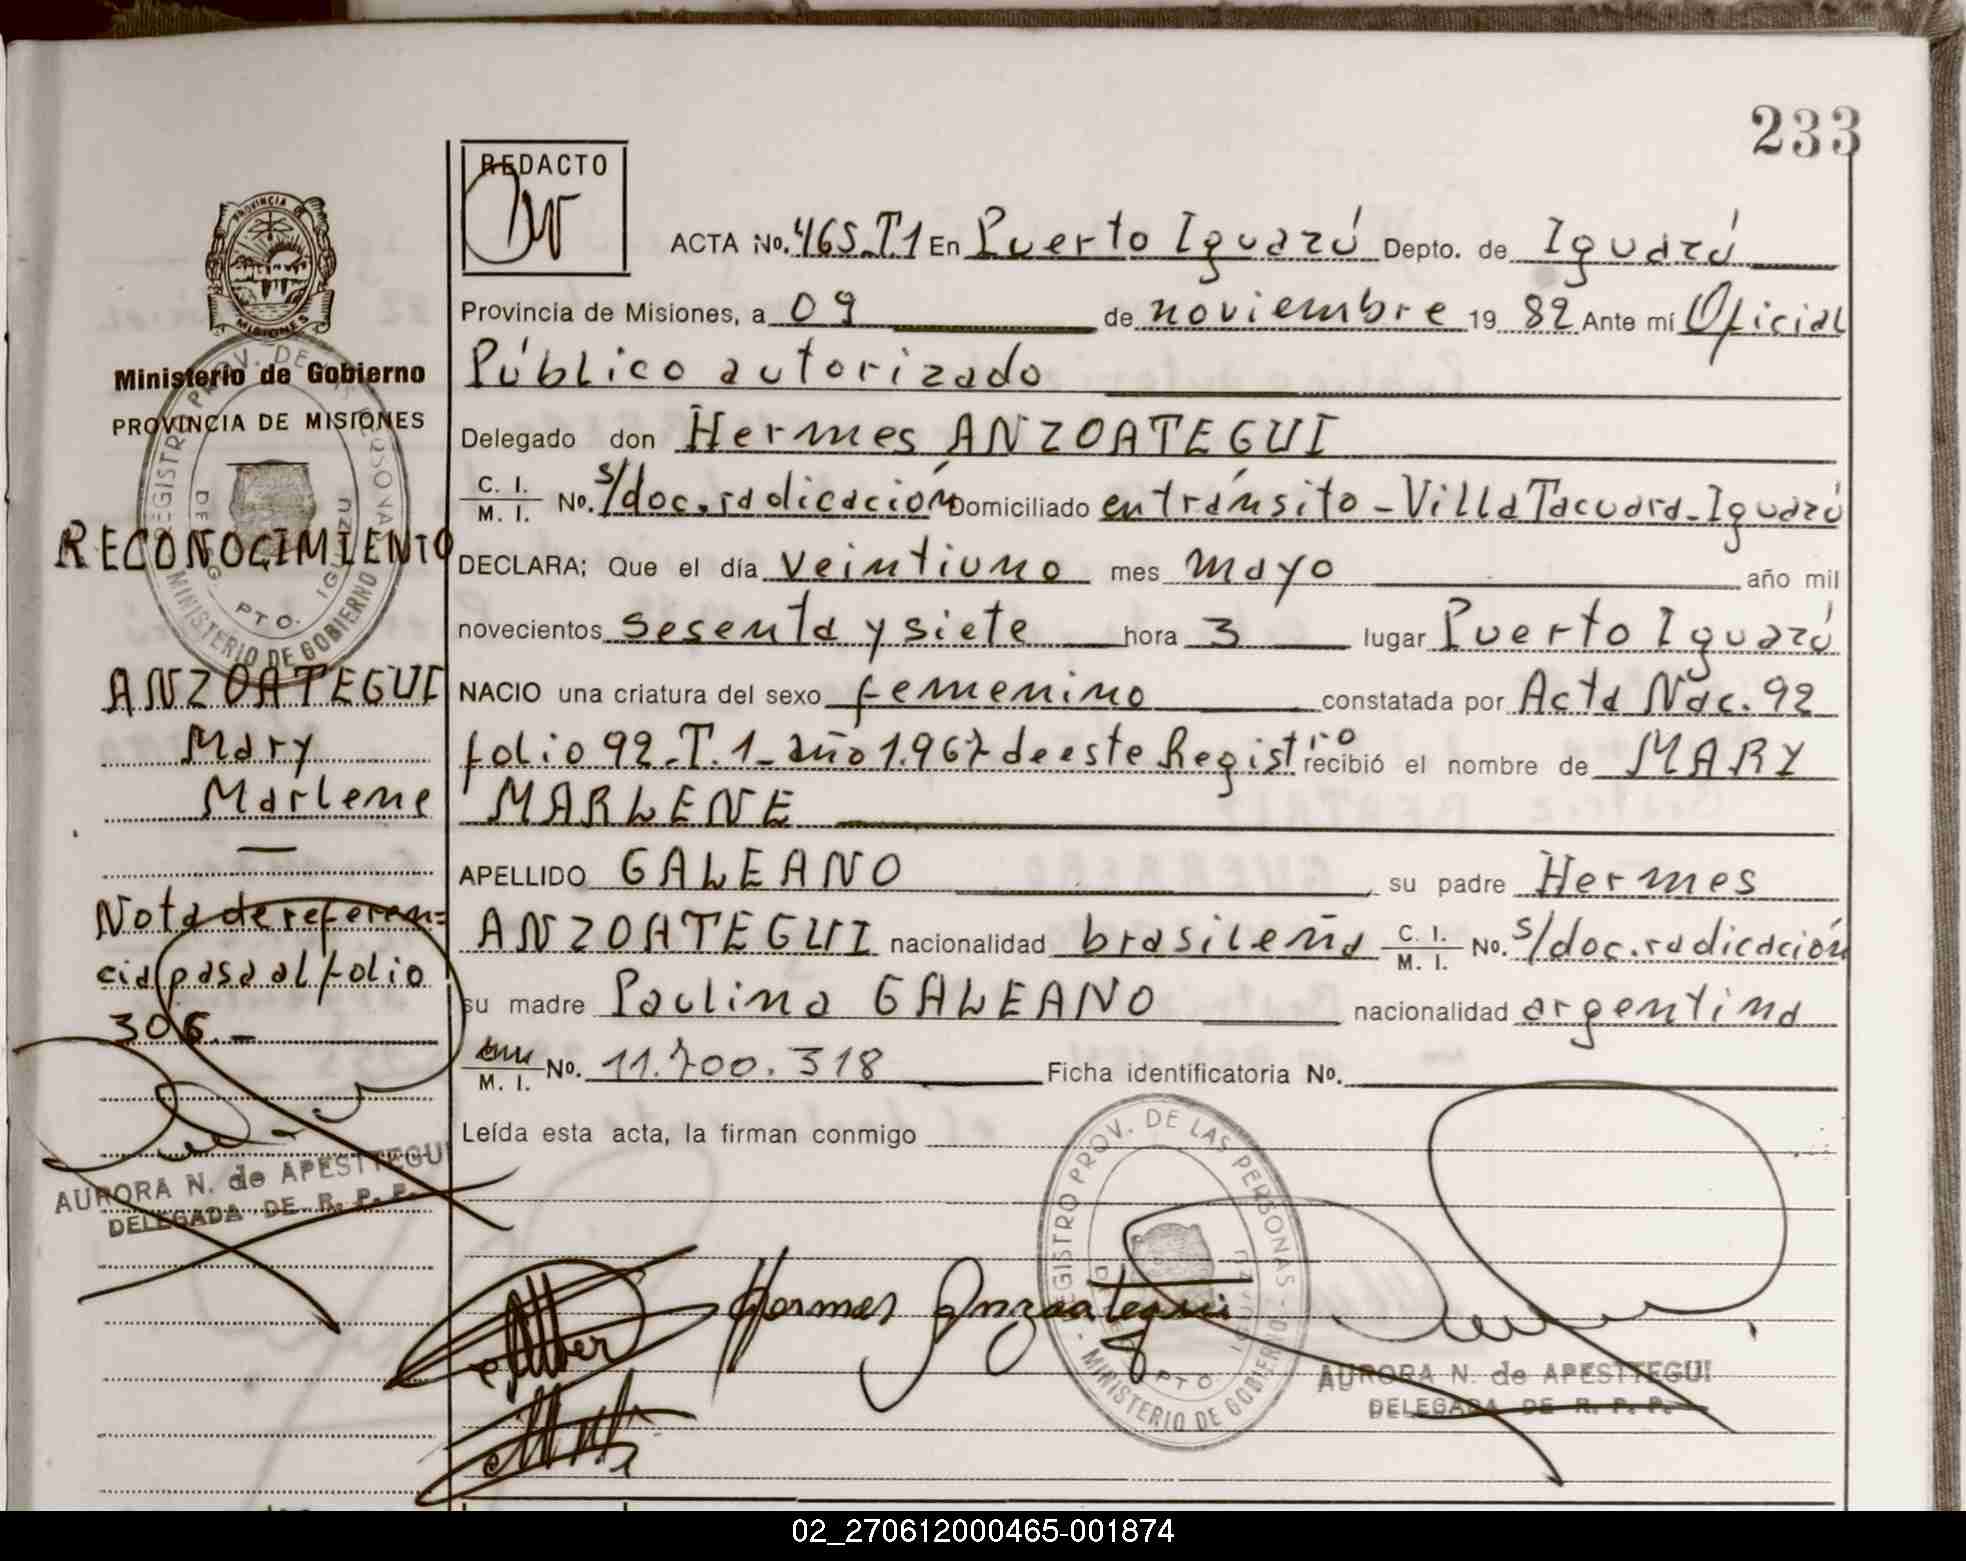 233
REDACTO
PROVINCIA DE
MISIONES
Ministerio de Gobierno
PROVINCIA DE MISIONES
REGISTRO PROV. DE LAS PERSONAS
MINISTERIO DE GOBIERNO
PTO. IGUAZU
RECONOCIMIENTO
ANZOATEGUI
Mary
Marlene
—
Nota de referen=
cia pasa al folio
306.—
AURORA N. de APESTTEGUI
DELEGADA DE R. P. P.
ACTA No. 465_T.1 En Puerto Iguazú Depto. de Iguazú
Provincia de Misiones, a 09 de noviembre 19 82 Ante mí Oficial
Público autorizado
Delegado don Hermes ANZOATEGUI
C. I. / M. I. No. s/doc. radicación Domiciliado en tránsito - Villa Tacuara - Iguazú
DECLARA; Que el día veintiuno mes mayo año mil
novecientos sesenta y siete hora 3 lugar Puerto Iguazú
NACIO una criatura del sexo femenino constatada por Acta Nac. 92
folio 92_T.1_año 1.967 de este Registro recibió el nombre de MARY
MARLENE
APELLIDO GALEANO su padre Hermes
ANZOATEGUI nacionalidad brasileña C. I. / M. I. No. s/doc. radicación
su madre Paulina GALEANO nacionalidad argentina
M. I. No. 11.700.318 Ficha identificatoria No.
Leída esta acta, la firman conmigo
REGISTRO PROV. DE LAS PERSONAS
MINISTERIO DE GOBIERNO
PTO. IGUAZU
Hermes Anzoategui
AURORA N. de APESTTEGUI
DELEGADA DE R. P. P.
02_270612000465-001874